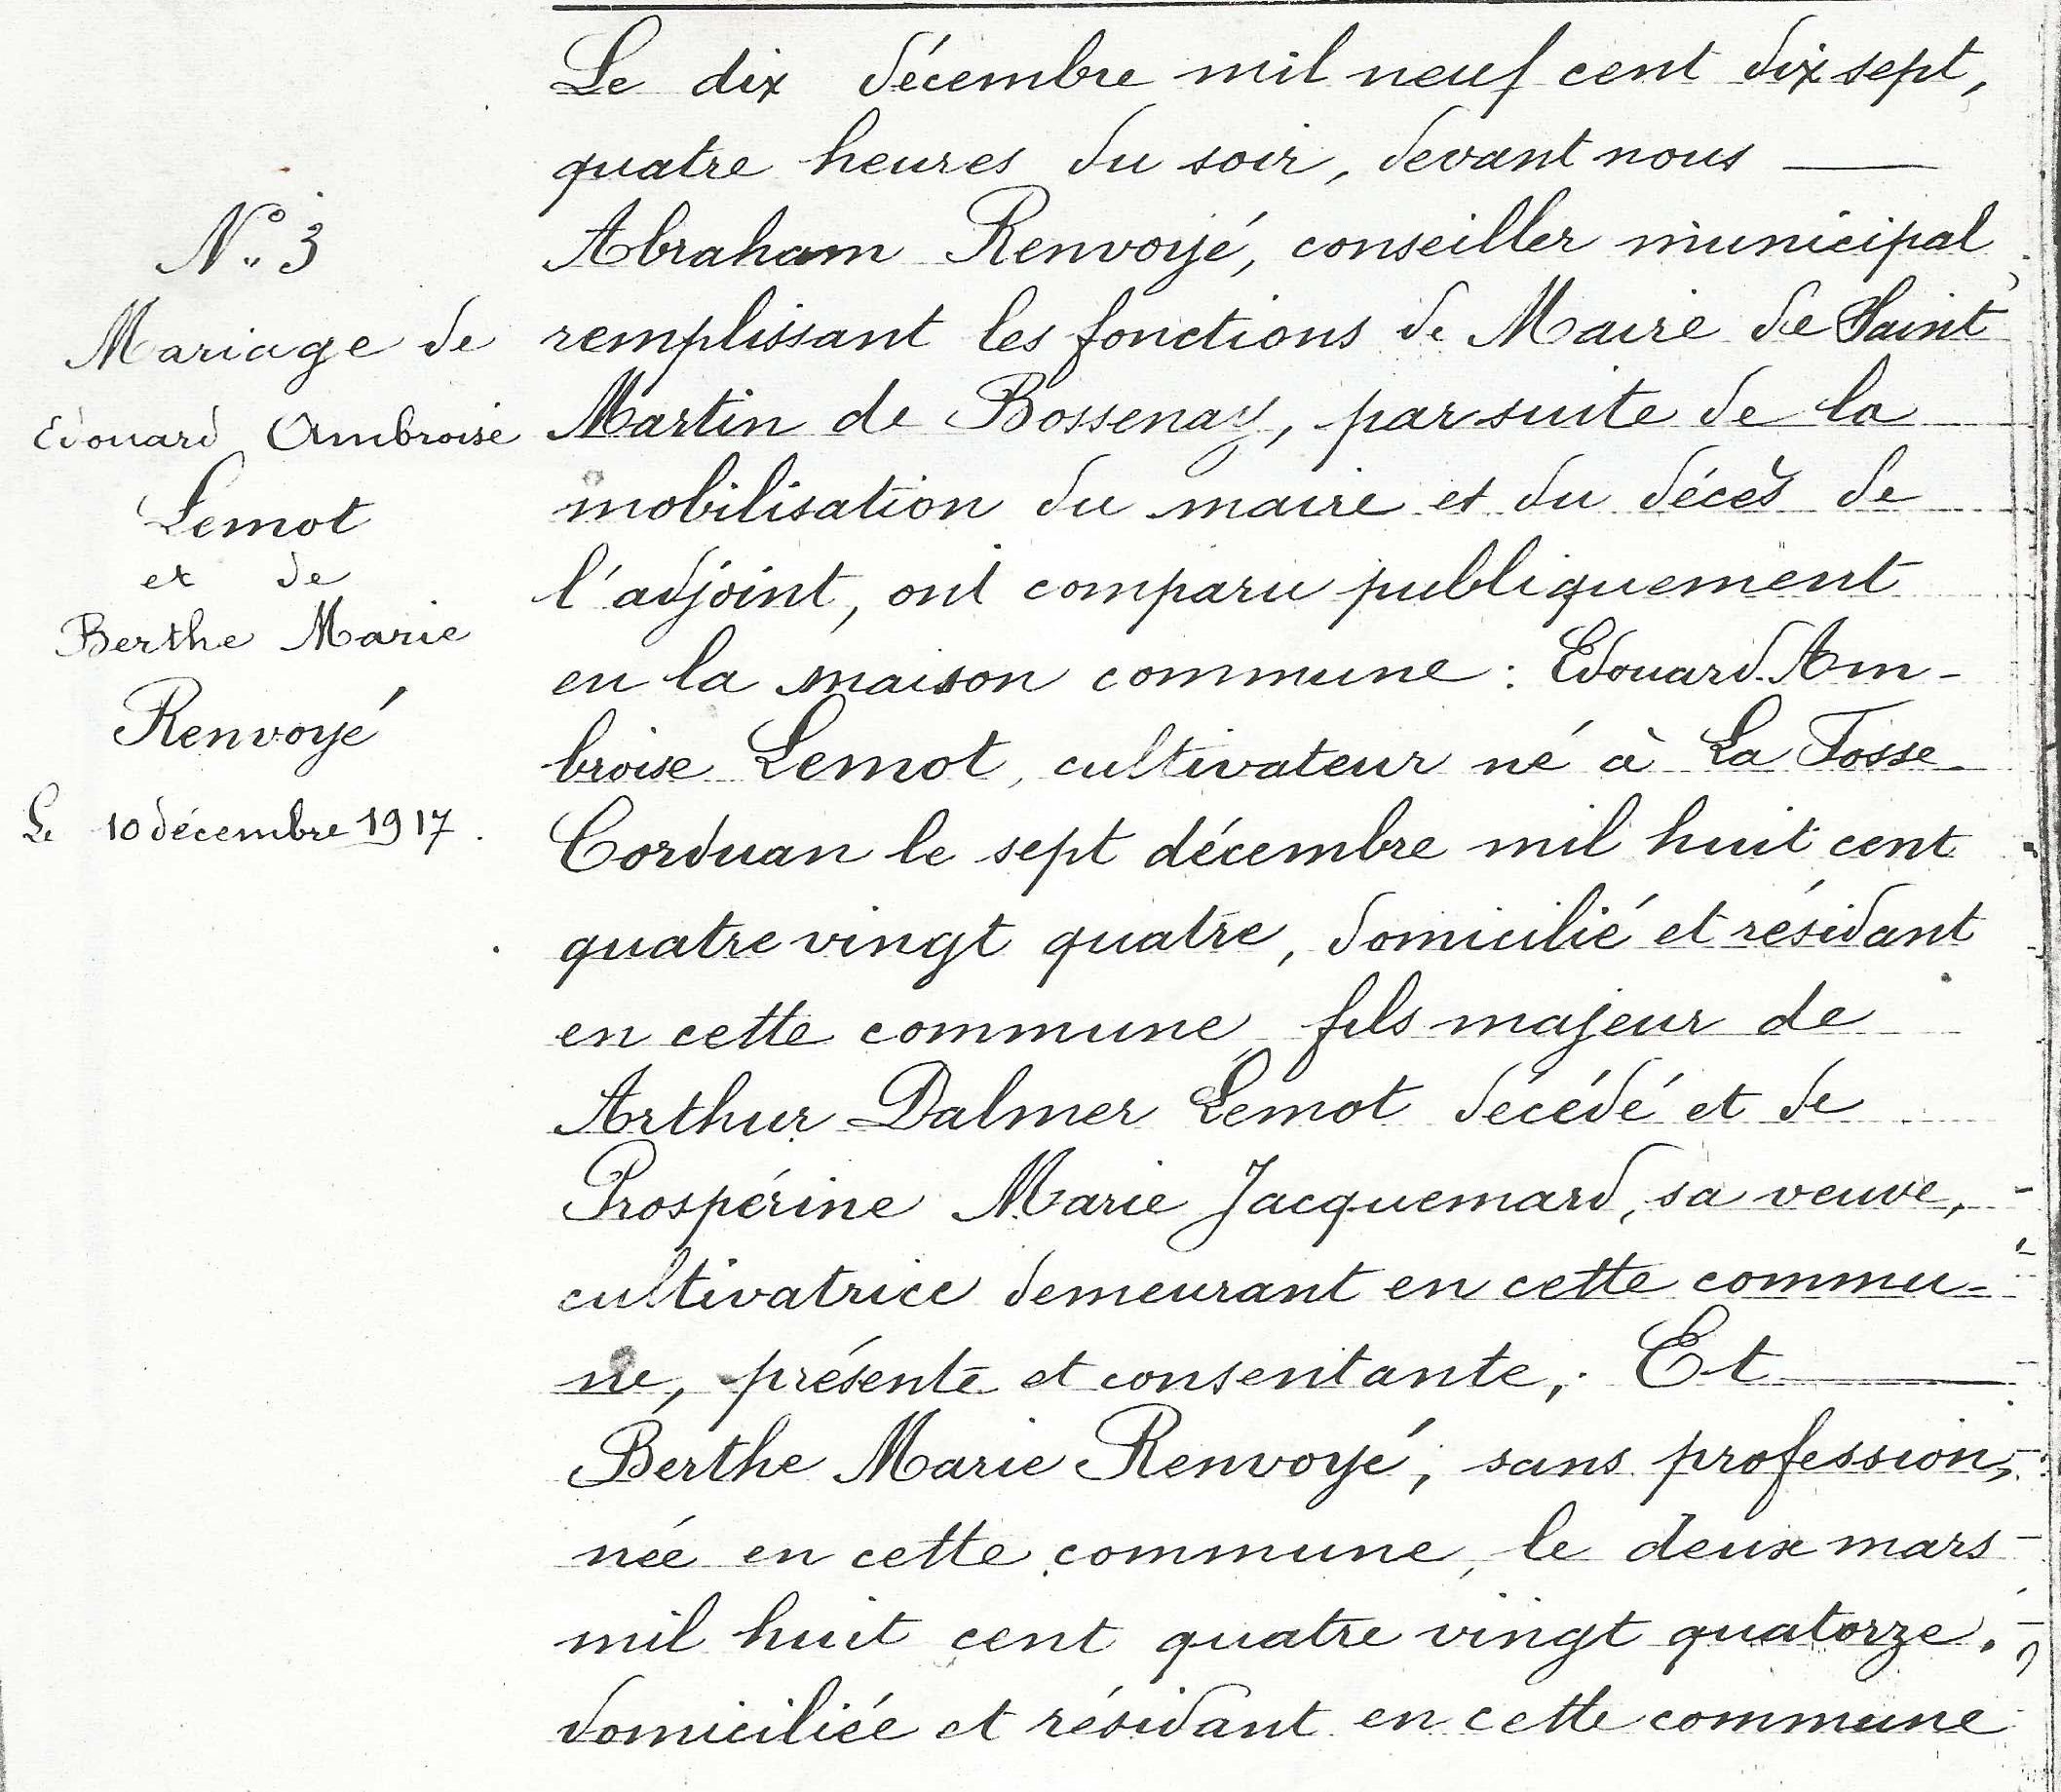 N° 3
Mariage de
Edouard Ambroise
Lemot
et de
Berthe Marie
Renvoyé
Le 10 décembre 1917.
Le dix décembre mil neuf cent dix sept,
quatre heures du soir, devant nous —
Abraham Renvoyé, conseiller municipal,
remplissant les fonctions de Maire de Saint
Martin de Bossenay, par suite de la
mobilisation du maire et du décès de
l'adjoint, ont comparu publiquement
en la maison commune : Edouard Am-
broise Lemot, cultivateur né à La Fosse
Corduan le sept décembre mil huit cent
quatre vingt quatre, domicilié et résidant
en cette commune, fils majeur de
Arthur Dalmer Lemot décédé et de
Prospérine Marie Jacquemard, sa veuve,
cultivatrice demeurant en cette commu-
ne, présente et consentante; Et —
Berthe Marie Renvoyé, sans profession,
née en cette commune, le deux mars
mil huit cent quatre vingt quatorze,
domiciliée et résidant en cette commune